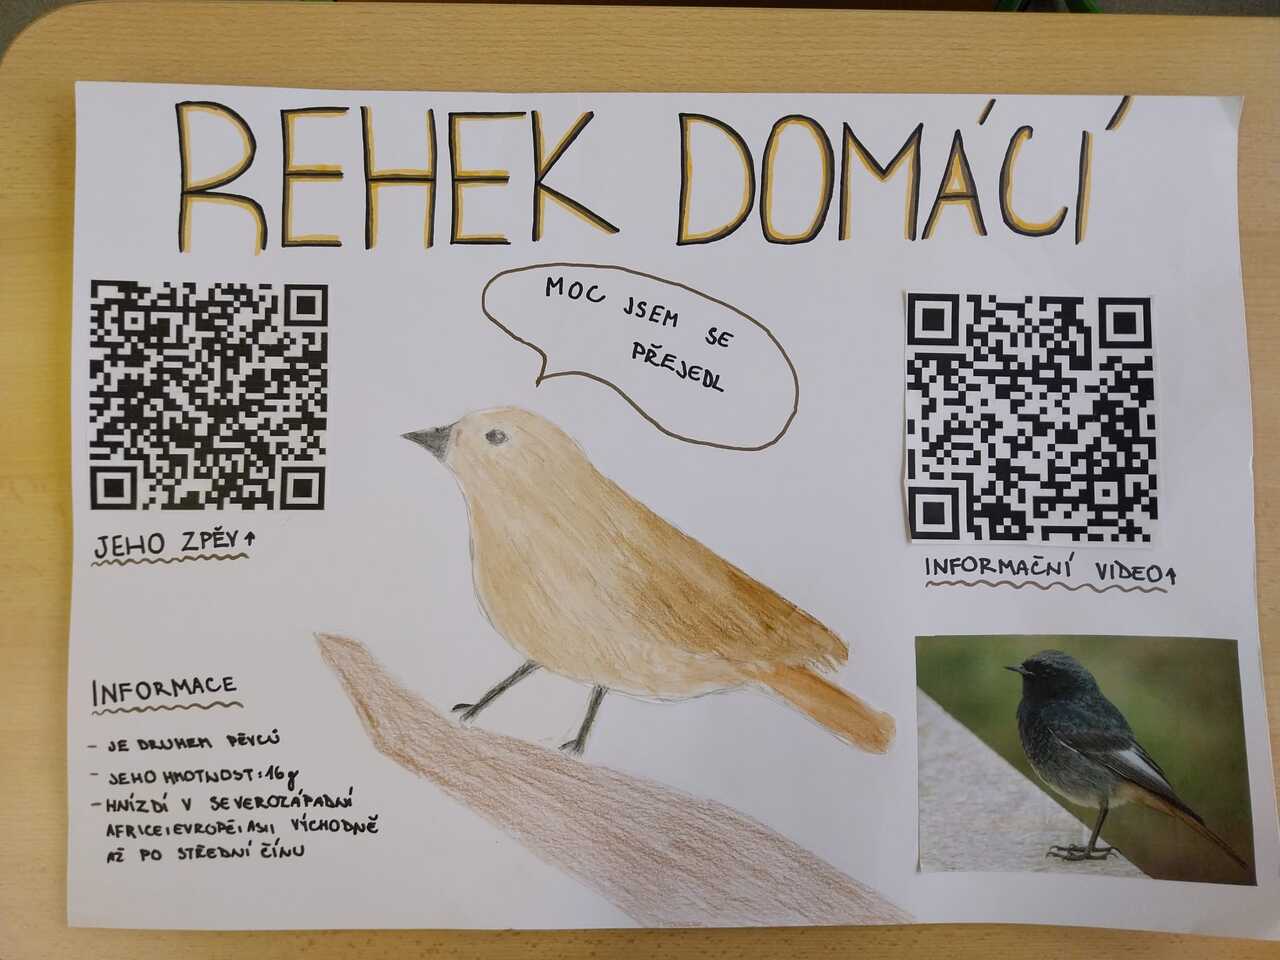 REHEK DOMÁCÍ
MOC JSEM SE
PŘEJEDL
JEHO ZPĚV↑
INFORMAČNÍ VIDEO↑
INFORMACE
- JE DRUHEM PĚVCŮ
- JEHO HMOTNOST: 16g
- HNÍZDÍ V SEVEROZÁPADNÍ
AFRICE, EVROPĚ, ASII VÝCHODNĚ
AŽ PO STŘEDNÍ ČÍNU